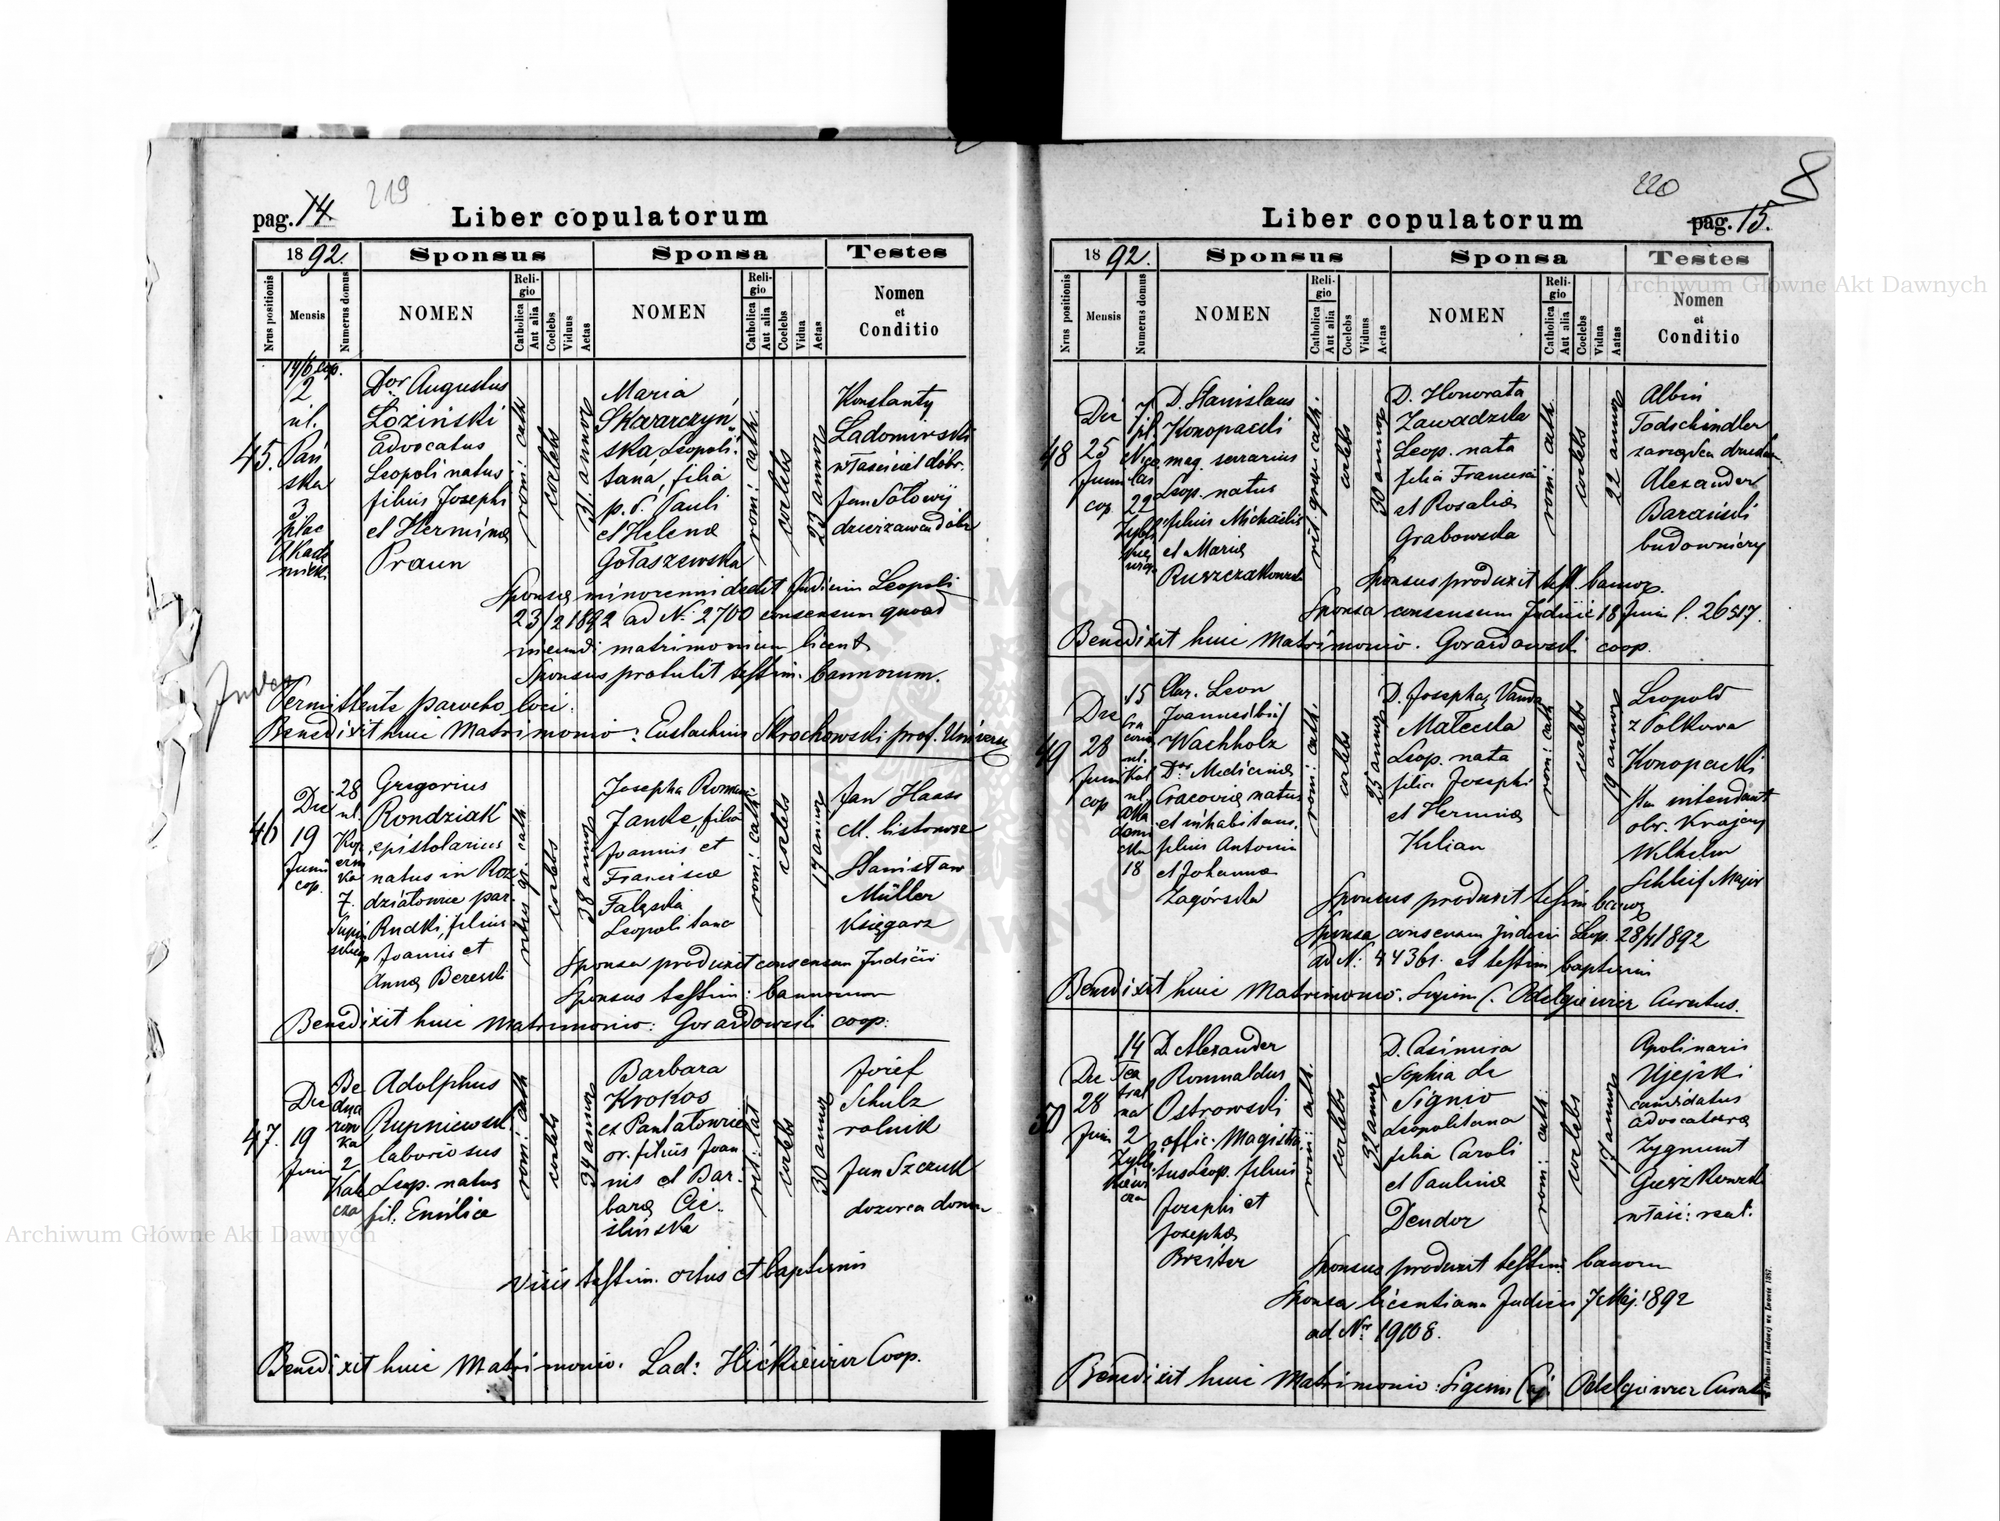 219
pag. 14
Liber copulatorum
1892.
Sponsus
Sponsa
Testes
Nrus positionis
Mensis
Numerus domus
NOMEN
Religio
Catholica
Aut alia
Coelebs
Viduus
Aetas
NOMEN
Religio
Catholica
Aut alia
Coelebs
Vidua
Aetas
Nomen
et
Conditio
45.
14/6 cop.
2
ul.
Pań
ska
3
plac
Akade
micki
Dor Augustus
Łoziński
advocatus
Leopoli natus
filius Josephi
et Herminæ
Praun
rom: cath
coelebs
31 annor
Maria
Skwarczyń
ska Leopoli
tana, filia
p. d. Pauli
et Helenæ
Gołaszewska
rom: cath.
coelebs
23 annor
Konstanty
Ladomirski
właściciel dóbr.
Jan Sołowij
dzierzawca dóbr
Sponsæ minorenni dedit Judicium Leopoli
23/2 1892 ad N: 2700 consensum quoad
ineundi matrimonium licentæ
Sponsus protulit testim: bannorum.
Index
Permittente parocho loci.
Benedixit huic Matrimonio: Eustachius Skrochowski prof. Univers
46
Die
19
Junii
cop.
28
ul.
Kop
erni
ka
7.
Gregorius
Rondziak
epistolarius
natus in Roz
działowie par.
Rudki, filius
Joannis et
Annæ Bereski
ritus gr. cath
coelebs
38 annor
Josepha Roman
Janke, filia
Joannis et
Franciscæ
Falęska
Leopolitana
rom: cath.
coelebs
17 annor
Jan Haass
M. listonosz
Stanisław
Müller
Księgarz
Sponsa produxit consensum Judicii
Sponsus testim: bannorum
Benedixit huic Matrimonio: Gorardowski coop.
47.
Die
19
Junii
Be
dna
row
ka
2
Kale
cza
Adolphus
Rupniewski
laboriosus
Leop. natus
fil. Emiliæ
rom: cath
coelebs
34 annor
Barbara
Krokos
ex Pantałowic
or. filius Joan
nis et Bar
baræ Cie
ślińska
rit: lat
coelebs
30 annor
Józef
Schulz
rolnik
Jan Szczuk
dozorca domu
Visis testim. ortus et baptismi
Benedixit huic Matrimonio. Lad: Hićkiewicz Coop.
220
8
Liber copulatorum
pag. 15.
1892.
Sponsus
Sponsa
Testes
Nrus positionis
Mensis
Numerus domus
NOMEN
Religio
Catholica
Aut alia
Coelebs
Viduus
Aetas
NOMEN
Religio
Catholica
Aut alia
Coelebs
Vidua
Aatas
Nomen
et
Conditio
48
Die
25
Junii
cop.
7
pl.
Nico
las
22
D. Stanislaus
Konopacki
mag. serrarius
Leop. natus
filius Michaelis
et Mariæ
Ruszczakowska
rit. græc. cath.
coelebs
30 annor
D. Honorata
Zawadzka
Leop. nata
filia Francisci
et Rosaliæ
Grabowska
rom: cath.
coelebs
22 annor
Albin
Todschindler
zarządca drukar.
Alexander
Barański
budowniczy
Sponsus produxit test. bannor.
Sponsa consensum Judicii 18 Junii l. 26517.
Benedixit huic Matrimonio. Gorardowski coop.
49
Die
28
Junii
cop
15
ul.
Kol
ul.
Aka
demi
cka
18
Clar. Leon
Wachholz
Dor Medicinæ
Cracoviæ natus
et inhabitans.
filius Antonii
et Johannæ
Zagórska
rom: cath.
coelebs
25 annor
D. Josepha, Vanda
Małecka
Leop. nata
filia Josephi
et Herminæ
Kilian
rom: cath
coelebs
19 annor
Leopold
z Polkowa
Konopacki
intendant
obr. Krajowej
Wilhelm
Schleif Major
Sponsus produxit testim bannor
Sponsa consensum judicii Leop. 28/4 1892
ad N: 44361. et testim baptismi
Benedixit huic Matrimonio. Adelgiewicz Curatus.
50
Die
28
Junii
14
Tea
tral
na
2
Zybli
kiewi
cza
D. Alexander
Romualdus
Ostrowski
offic. Magistra
tus Leop. filius
Josephi et
Josephæ
Breiter
rom: cath.
coelebs
32 annor
D. Casimira
Sophia de
Signio
Leopolitana
filia Caroli
et Paulinæ
Dendor
rom: cath:
coelebs
17 annor
Apolinaris
Ujejski
candidatus
advocaturæ
Zygmunt
Gieszkowski
właśc: real.
Sponsus produxit testim. banorum
Sponsa licentiam Judicii 7 Maj. 1892
ad Nr. 19108.
Benedixit huic Matrimonio: Adelgiewicz Curatus
Archiwum Główne Akt Dawnych
Archiwum Główne Akt Dawnych